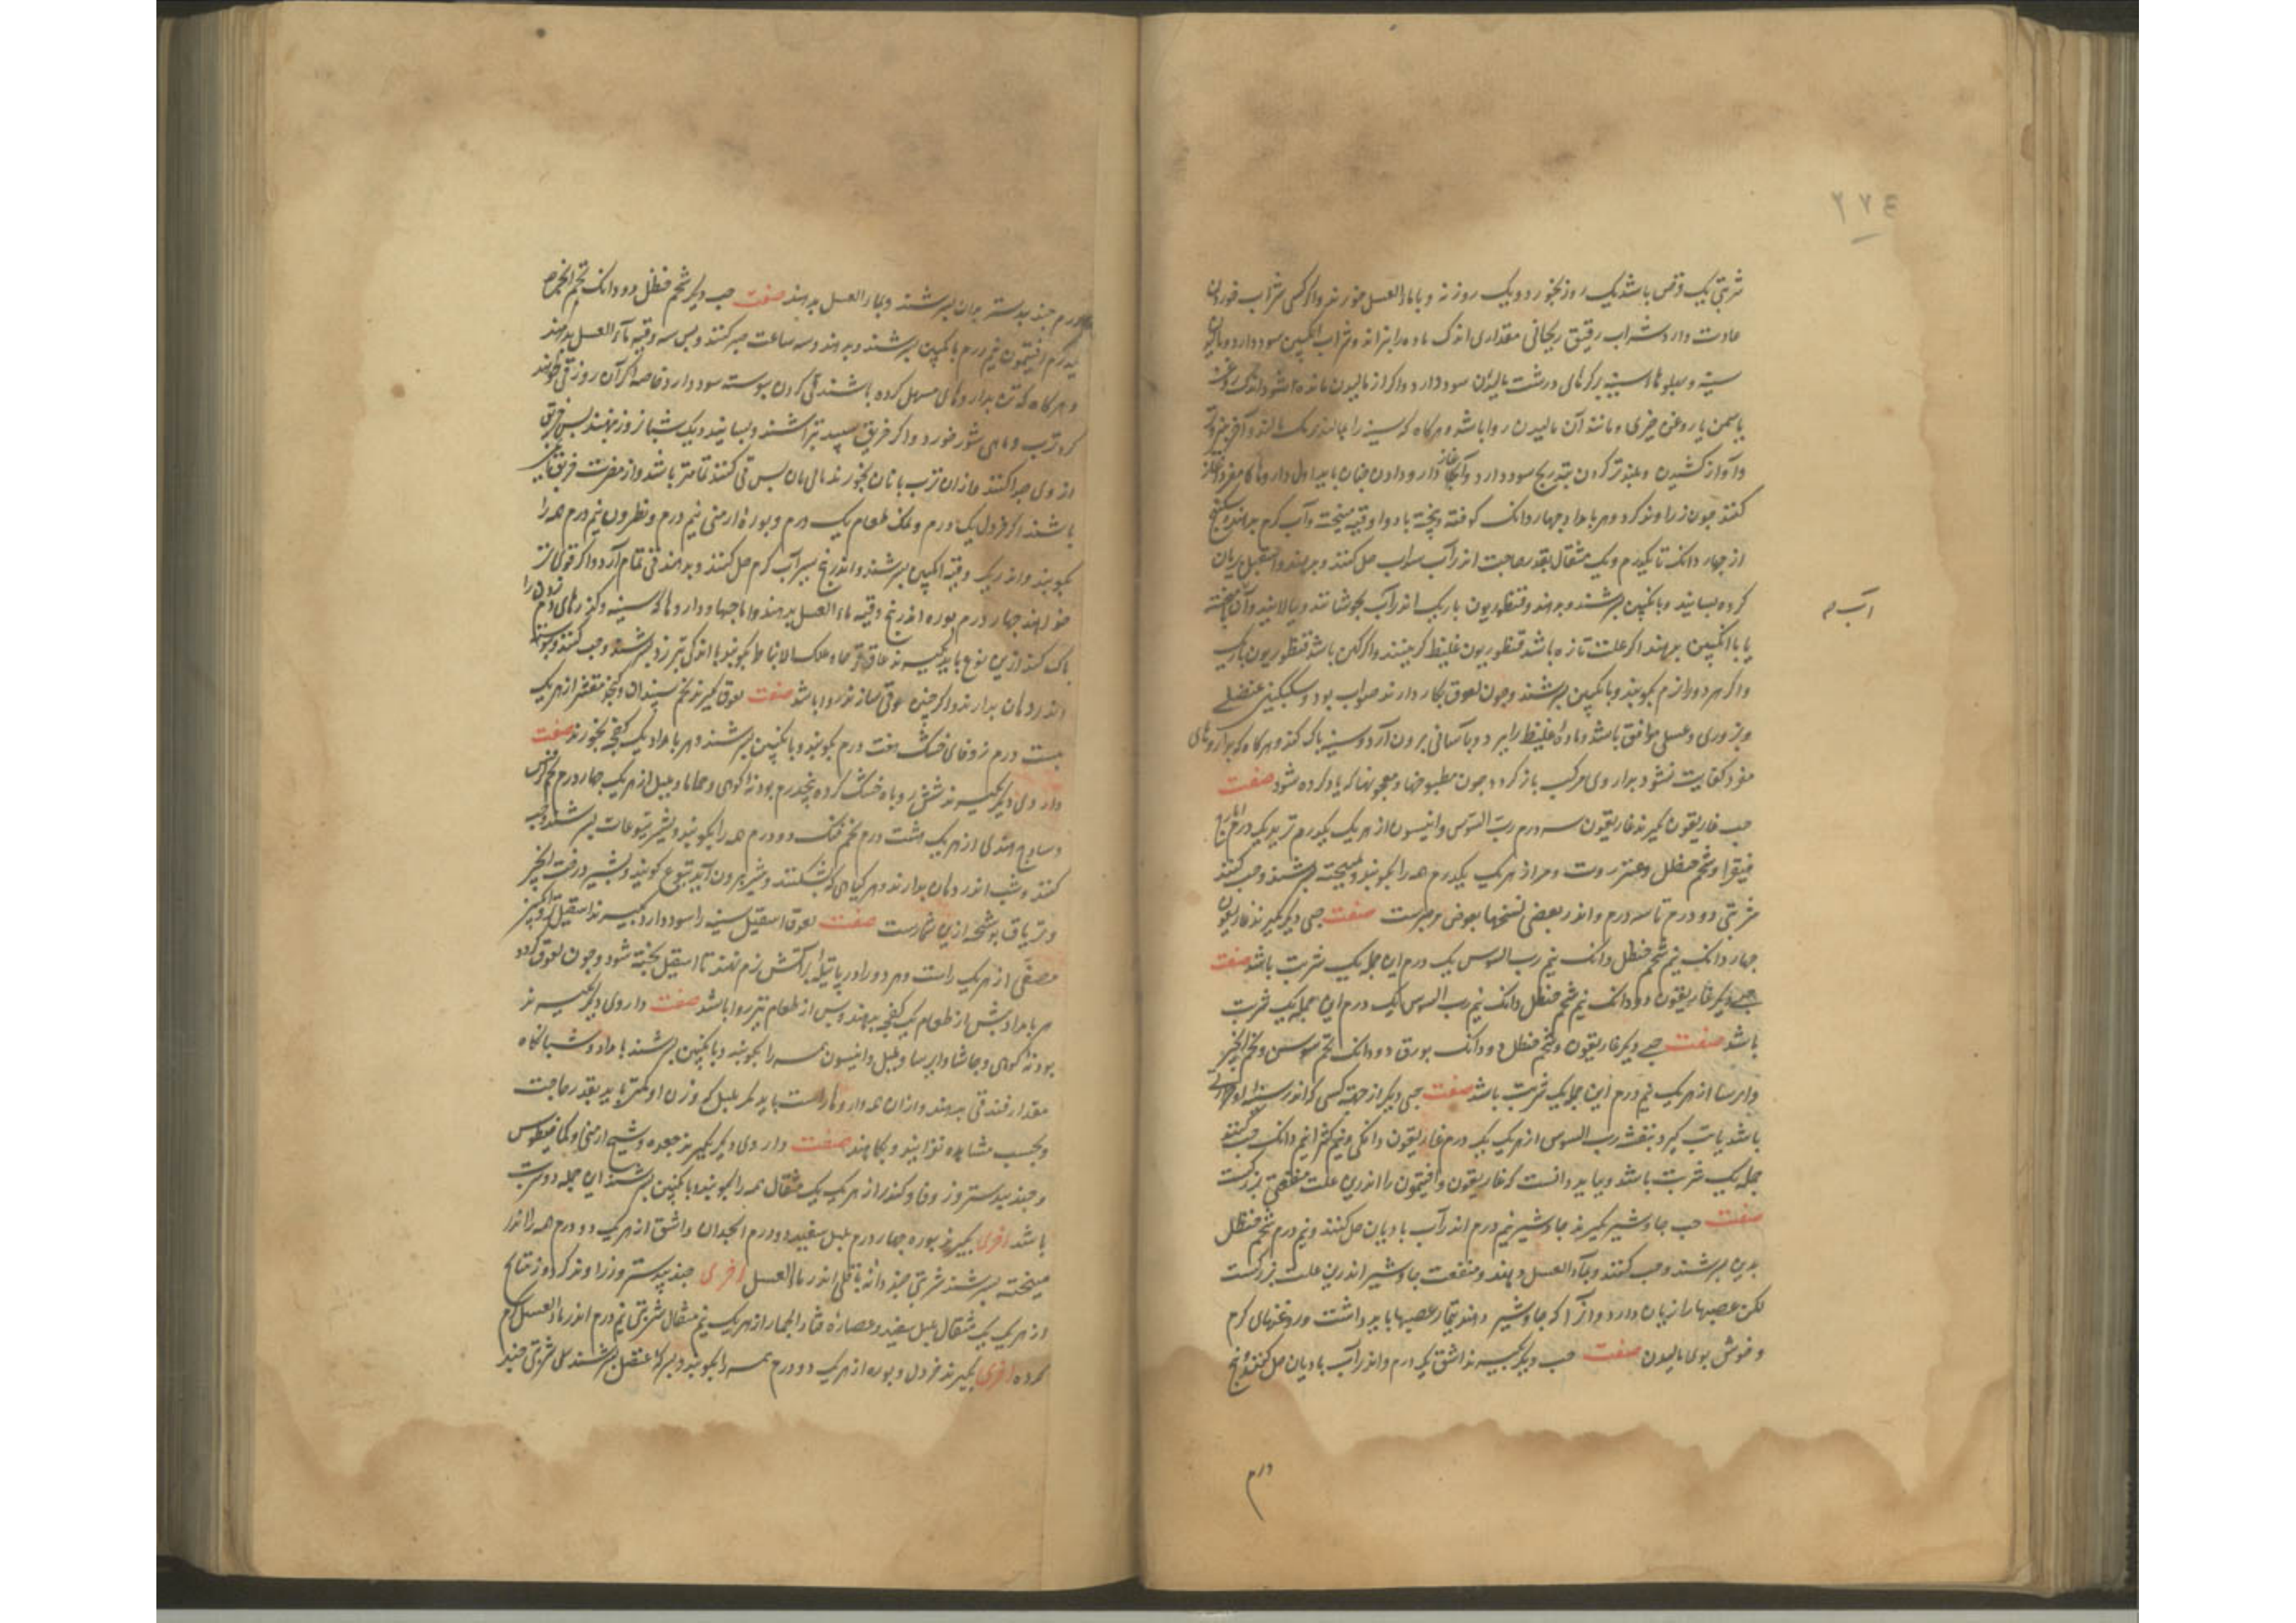 ۲۷۴
شربتی یک قرص باشد یک روز بخورد و یک روز نه و با ماء العسل خورند و اگر کسی شراب خوردن
عادت دارد شراب رقیق ریحانی مقداری اندک ماده را بزاند و شراب انگبین سود دارد و
سینه و پهلوها بدرکهای درشت مالیدن سود دارد و اگر از مالیدن مانده شود اندکی روغن
یاسمن یا روغن خیری و مانند آن مالیدن روا باشد و هرگاه که سینه را بمالند
و آواز کشیدن و بلندتر کردن بتدریج سود دارد و آغاز دارو دادن چنان باید اول داروها کا مفرد آغاز
کنند چون زراوند کرد و هر بامداد چهار دانک کوفته و پخته با دو اوقیه میپخته و آب گرم بدهند و سکبینج
از چهار دانک تا یکدرم و یک مثقال بقدر حاجت اندر آب سداب حل کنند و بدهند و اسقیل بریان
کرده بسایند و بانگبین بسرشند و بدهند و قنطوریون باریک اندر آب بجوشانند و بپالایند و آن پخته
آب
یا با انگبین بدهند اگر علت تازه باشد قنطوریون غلیظ گزینند و اگر کهن باشد قنطوریون باریک
و اگر هر دو را نرم بکوبند و بانگبین بسرشند و چون لعوق بکار دارند صواب بود و سکنگبین عنصلی
و بزوری و عسلی موافق باشد و ماده غلیظ را ببرد و بآسانی برون آرد و سینه پاک کند و هرگاه که بداروهای
مفرد کفایت نشود بداروی مرکب باز گردد چون مطبوخها و معجونها که یاد کرده شود صفت
حب غاریقون گیرند غاریقون سه درم رب السوس و انیسون از هر یک یکدرم تربد یکدرم ایارج
فیقرا و شحم حنظل و عنزروت و مر از هر یک یکدرم همه را بکوبند و بمیپخته بسرشند و حب کنند
شربتی دو درم تا سه درم و اندر بعضی نسخها بعوض مر مرست صفت حبی دیگر گیرند غاریقون
چهار دانک نیم شحم حنظل دانک نیم رب السوس یک درم این جمله یک شربت باشد صفت
حبی دیگر غاریقون دو دانک نیم شحم حنظل دانک نیم رب السوس یک درم این جمله یک شربت
باشد صفت حبی دیگر غاریقون و شحم حنظل دو دانک بورق دو دانک تخم سوسن و تخم انجره
و ایرسا از هر یک نیم درم این جمله یک شربت باشد صفت حبی دیگر از جهة کسی که اندر سینه او
باشد گیرد بنفشه رب السوس از هر یک یک درم غاریقون دانکی و نیم کثیرا نیم دانک حب کنند
جمله یک شربت باشد و بباید دانست که غاریقون و افتیمون را اندرین علت منفعتی بزرکست
صفت حب جاوشیر گیرند جاوشیر نیم درم اندر آب بادیان حل کنند و نیم درم شحم حنظل
بدین بسرشند و حب کنند و بماء العسل دهند و منفعت جاوشیر اندرین علت بزرکست
لکن عصبها را زیان دارد و آنرا که جاوشیر دهند تیمار عصبها باید داشت و روغنهای گرم
و خوش بوی مالیدن صفت حب دیگر گیرند اشق یک درم و اندر آب بادیان حل کنند و پنج
درم
درم جندبیدستر بدان بسرشند و بماء العسل بدهند صفت حب دیگر شحم حنظل دو دانک تخم انجره
یکدرم افتیمون نیم درم بانگبین بسرشند و بدهند و سه ساعت صبر کنند و پس سه وقیه ماء العسل بدهند
و هرگاه که تن بداروهای مسهل کرده باشند قی کردن پیوسته سود دارد خاصه اگر آن روز قی خواهند
کرد ترب و ماهی شور خورد و اگر خربق سپید بتراشند و بسایند و یک شبانروز بنهند پس خربق
از وی جدا کنند و از آن ترب با نان بخورند پس قی کنند تمامتر باشد و از مضرت خربق ایمن
باشند اگر خردل یکدرم و نمک طعام یک درم و بوره ارمنی نیم درم و نطرون نیم درم همه را
بکوبند و اندر یک وقیه انگبین بسرشند و اندر پنج سیر آب گرم حل کنند و بدهند قی تمام آرد و اگر قوی تر
خواهند چهار درم بوره اندر پنج وقیه ماء العسل بدهند و اما حبها و داروها که سینه و گذرهای دم زدن را
پاک کند ازین نوع باید گیرند عاقرقرحا و علک الانباط بکوبند با اندکی بسرشند و حب کنند و پیوسته
اندر دهان بدارند و اگر چنین لعوقی سازند روا باشد صفت لعوق گیرند تخم سپندان و کنجد مقشر از هر یک
بیست درم زوفای خشک هفت درم بکوبند و بانگبین بسرشند و هر بامداد یک کفچه بخورند صفت
داروی دیگر گیرند شش روباه خشک کرده پنجدرم پودنه کوهی و حماما و پلپل از هر یک چهار درم تخم کرفس
و ساذج هندی از هر یک هشت درم تخم دو درم همه را بکوبند و بشیر یتوعات بسرشند و حب
کنند و شب اندر دهان بدارند و هر گیاهی که بشکنند و شیر برون آید یتوع گویند و شیر درخت انجیر
و تریاق ازین شمارست صفت لعوق اسقیل سینه را سود دارد گیرند اسقیل و انگبین
مصفی از هر یک راست و هر دو را در پاتیله بر آتش نرم نهند تا اسقیل پخته شود و چون لعوق گردد
هر بامداد پیش از طعام یک کفچه بدهند و پس از طعام نیز روا باشد صفت داروی دیگر گیرند
پودنه کوهی و حاشا و ایرسا و پلپل و انیسون همه را بکوبند و بانگبین بسرشند بامداد و شبانگاه
مقدار فندقی بدهند و از آن همه داروها راست باید مگر پلپل که وزن او کمتر باید بقدر حاجت
و بحسب مشاهده فزایند و بکاهند صفت داروی دیگر بگیرند جعده و شیح ارمنی و کمافیطوس
و جندبیدستر و زوفا و کندر از هر یک یک مثقال همه را بکوبند و بانگبین بسرشند این جمله دو شربت
باشد اخری بگیرند بوره چهار درم پلپل سفید دو درم انجدان و اشق از هر یک دو درم همه را اندر
میپخته بسرشند شربتی چند دانه باقلی اندر ماء العسل اخری جندبیدستر و زراوند گرد و زنتاح
از هر یک یک مثقال پلپل سفید و عصاره قثاء الحمار از هر یک نیم مثقال شربتی نیم درم اندر ماء العسل گرم
کرده اخری بگیرند خردل و بوره از هر یک دو درم همه را بکوبند و بسرکه عنصل بسرشند شربتی چند